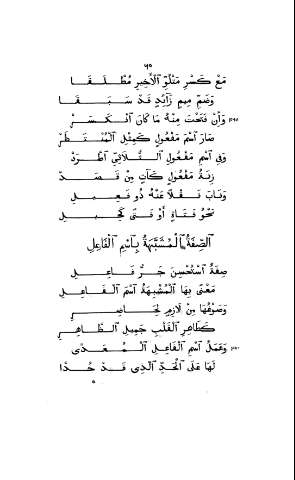 ٦٥
مَعْ كَسْرِ مَتْلُوِّ الْأَخِيرِ مُطْلَقَا
وَضَمِّ مِيمٍ زَائِدٍ قَدْ سَبَقَا
وَإِنْ فَتَحْتَ مِنْهُ مَا كَانَ انْكَسَرْ
صَارَ اسْمَ مَفْعُولٍ كَمِثْلِ الْمُنْتَظَرْ
وَفِي اسْمِ مَفْعُولِ الثُّلَاثِيِّ اطَّرَدْ
زِنَةُ مَفْعُولٍ كَآتٍ مِنْ قَصَدْ
وَنَابَ نَقْلًا عَنْهُ ذُو فَعِيلِ
نَحْوُ فَتَاةٍ أَوْ فَتًى كَحِيلِ
الصِّفَةُ الْمُشَبَّهَةُ بِاسْمِ الْفَاعِلِ
صِفَةٌ اسْتُحْسِنَ جَرُّ فَاعِلِ
مَعْنًى بِهَا الْمُشْبِهَةُ اسْمَ الْفَاعِلِ
وَصَوْغُهَا مِنْ لَازِمٍ لِحَاضِرِ
كَطَاهِرِ الْقَلْبِ جَمِيلِ الظَّاهِرِ
وَعَمَلُ اسْمِ الْفَاعِلِ الْمُعَدَّى
لَهَا عَلَى الْحَدِّ الَّذِي قَدْ حُدَّا